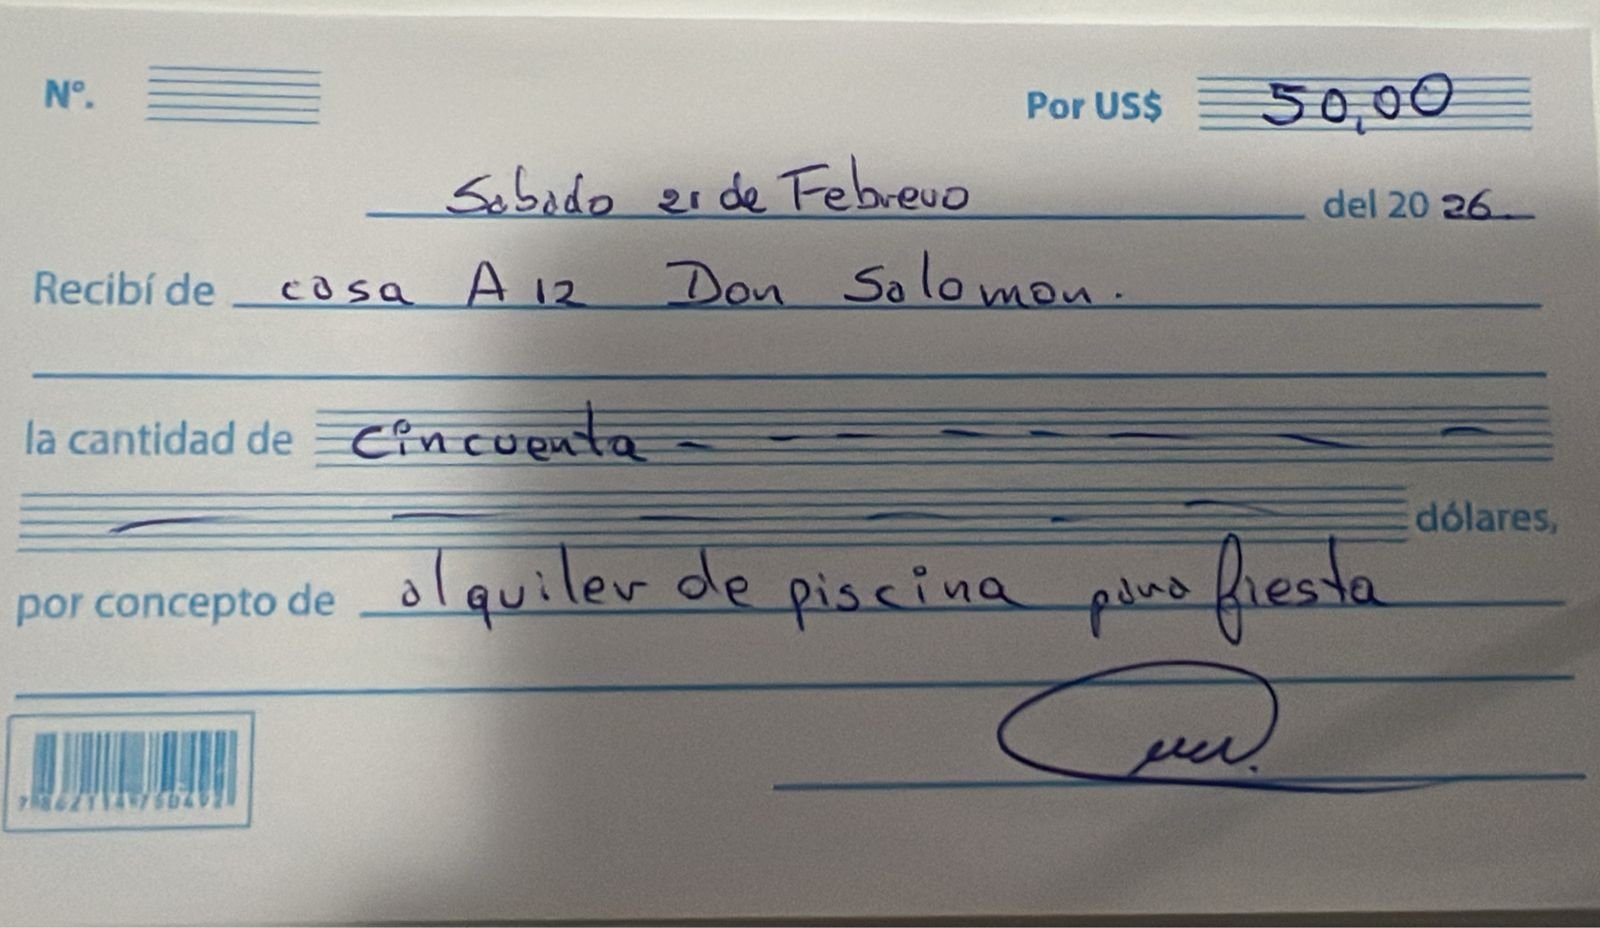 Nº.
Por US$ 50,00
Sabado 21 de Febrero del 2026
Recibí de casa A 12 Don Salomon.
la cantidad de cincuenta - - - - - - - -
- - - - - - dólares,
por concepto de alquiler de piscina para fiesta